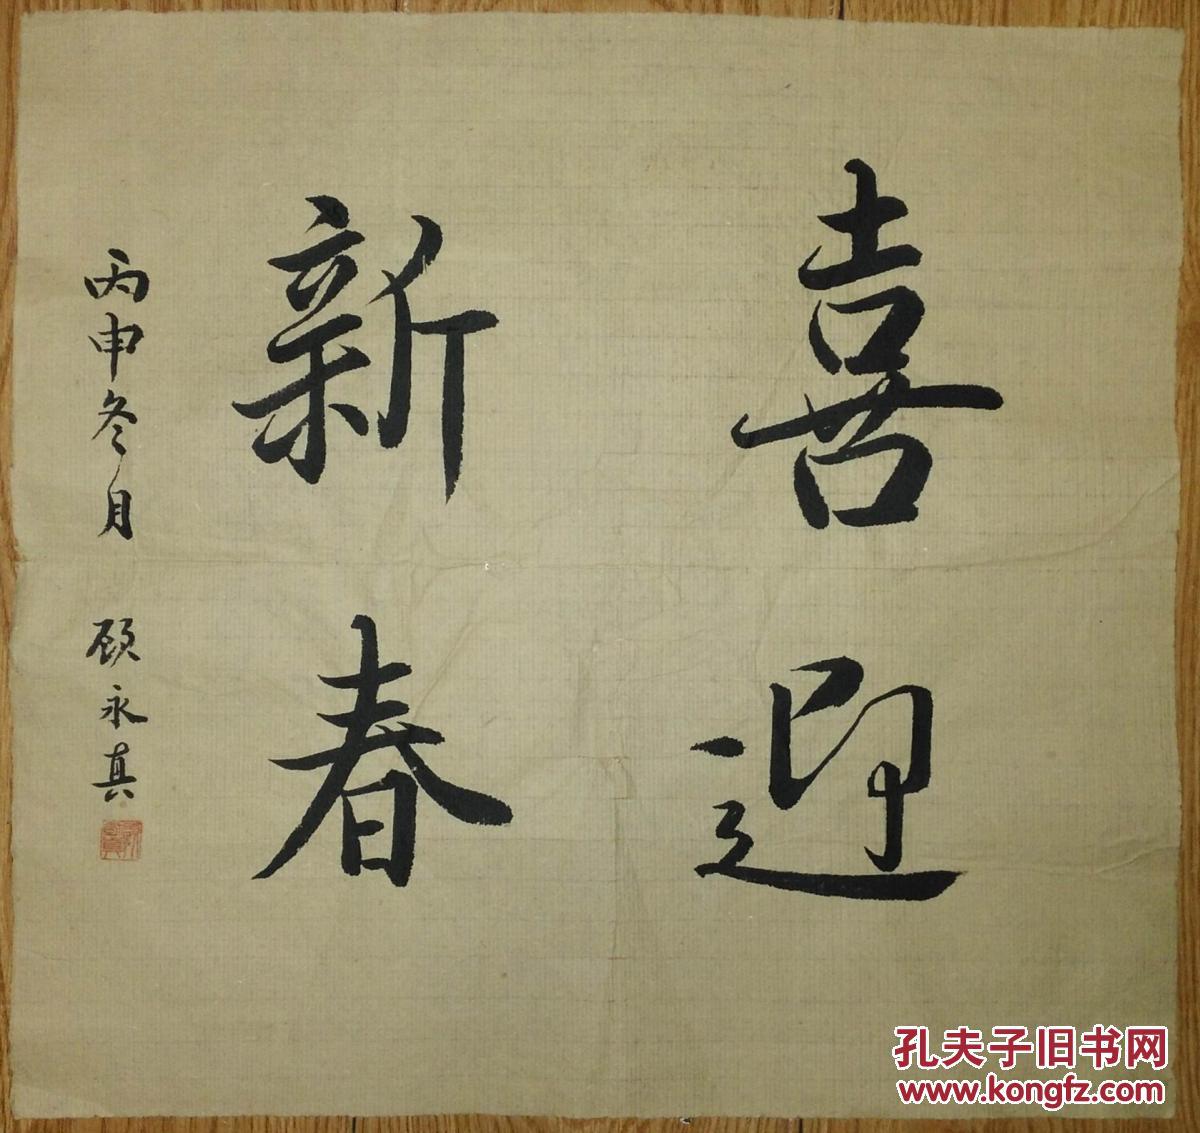 喜迎
新春
丙申冬月 顾永真
孔夫子旧书网
www.kongfz.com